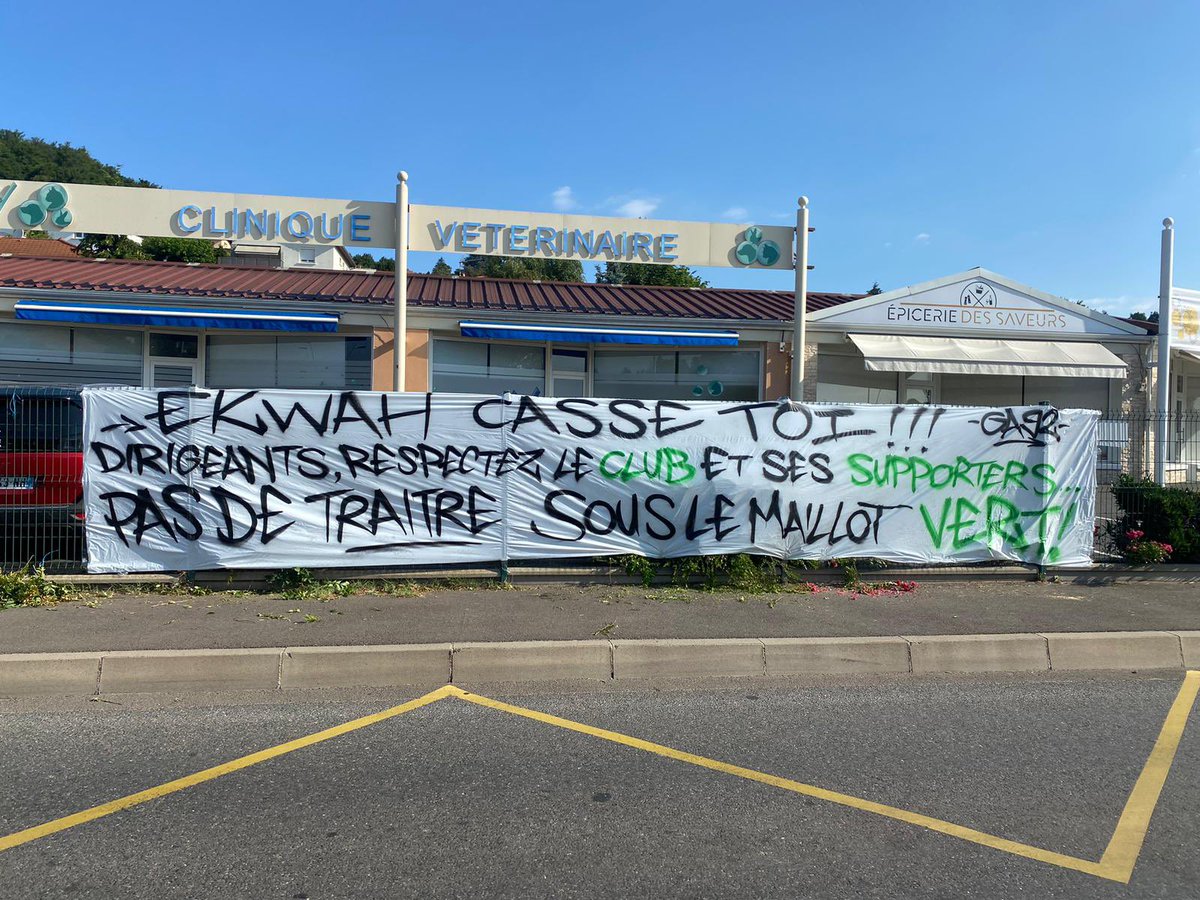 CLINIQUE VETERINAIRE
ÉPICERIE DES SAVEURS
→ EKWAH CASSE TOI !!! -GA92-
DIRIGEANTS, RESPECTEZ LE CLUB ET SES SUPPORTERS...
PAS DE TRAITRE SOUS LE MAILLOT VERT!